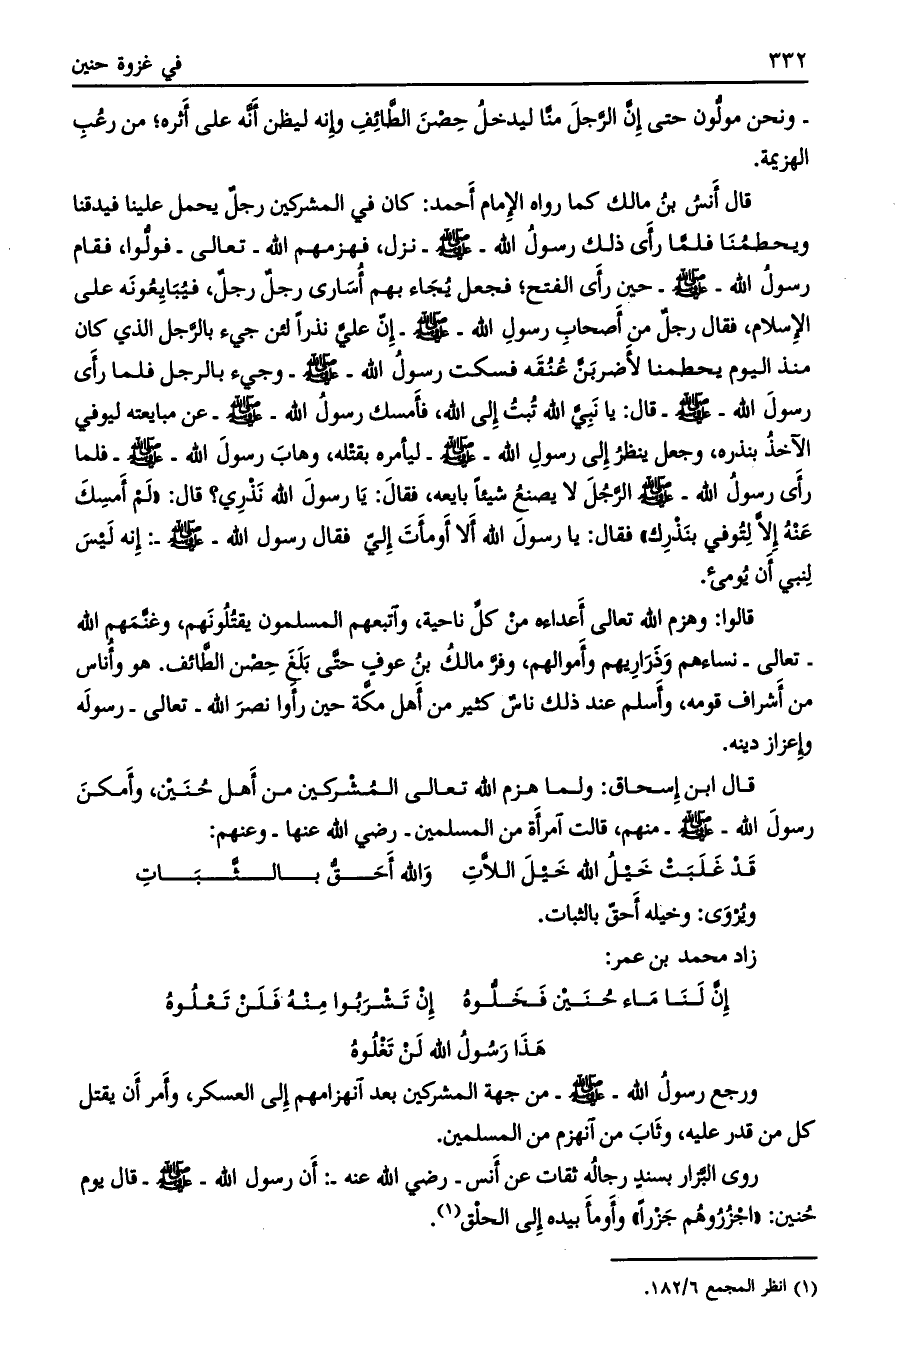 ٣٣٢ في غزوة حنين
ـ ونحن مولُّون حتى إِنَّ الرَّجلَ منَّا ليدخلُ حِصْنَ الطَّائِفِ وإِنه ليظن أَنَّه على أَثره؛ من رعُبِ
الهزيمة.
قال أَنسُ بنُ مالك كما رواه الإِمام أَحمد: كان في المشركين رجلٌ يحمل علينا فيدقنا
ويحطمُنَا فلمَّا رأَى ذلك رسولُ الله ـ ﷺ ـ نزل، فهزمهم الله ـ تعالى ـ فولُّوا، فقام
رسولُ الله ـ ﷺ ـ حين رأَى الفتح؛ فجعل يُجَاء بهم أُسَارى رجلٌ رجلٌ، فيُبَايِعُونَه على
الإِسلام، فقال رجلٌ من أَصحابِ رسولِ الله ـ ﷺ ـ إِنّ عليَّ نذراً لئن جيء بالرَّجل الذي كان
منذ اليوم يحطمنا لأَضربَنَّ عُنُقَه فسكت رسولُ الله ـ ﷺ ـ وجيء بالرجل فلما رأَى
رسولَ الله ـ ﷺ ـ قال: يا نَبِيَّ الله تُبتُ إِلى الله، فأَمسك رسولُ الله ـ ﷺ ـ عن مبايعته ليوفي
الآخذُ بنذره، وجعل ينظرُ إِلى رسولِ الله ـ ﷺ ـ ليأمره بقتْله، وهابَ رسولَ الله ـ ﷺ ـ فلما
رأَى رسولُ الله ـ ﷺ الرَّجُلَ لا يصنعُ شيئاً بايعه، فقالَ: يَا رسولَ الله نَذْرِي؟ قال: «لَمْ أَمسِكَ
عَنْهُ إِلاَّ لِتُوفي بنَذْرِك» فقال: يا رسولَ الله أَلا أَومأتَ إِليّ فقال رسول الله ـ ﷺ ـ: إِنه لَيْسَ
لِنبي أَن يُومئ.
قالوا: وهزم الله تعالى أَعداءه منْ كلِّ ناحية، وآتبعهم المسلمون يقتُلُونَهم، وغنَّمَهم الله
ـ تعالى ـ نساءهم وَذَرَارِيهم وأَموالهم، وفرَّ مالكُ بنُ عوفٍ حتَّى بَلَغَ حِصْن الطَّائف. هو وأُناس
من أَشراف قومه، وأَسلم عند ذلك ناسٌ كثير من أَهل مكَّة حين رأَوا نصرَ الله ـ تعالى ـ رسولَه
وإِعزاز دينه.
قال ابن إِسحاق: ولما هزم الله تعالى المُشْركين من أَهل حُنَيْن، وأَمكنَ
رسولَ الله ـ ﷺ ـ منهم، قالت آمرأَة من المسلمين ـ رضي الله عنها ـ وعنهم:
قَدْ غَلَبَتْ خَيْلُ الله خَيْلَ اللاَّتِ وَالله أَحَقُّ بالثَّبَاتِ
ويُرْوَى: وخيله أَحقّ بالثبات.
زاد محمد بن عمر:
إِنَّ لَنَا مَاء حُنَيْن فَخَلُّوهُ إِنْ تَشْرَبُوا مِنْهُ فَلَنْ تَعْلُوهُ
هَذَا رَسُولُ الله لَنْ تَغْلُوهُ
ورجع رسولُ الله ـ ﷺ ـ من جهة المشركين بعد آنهزامهم إِلى العسكر، وأَمر أَن يقتل
كل من قدر عليه، وثَابَ من آنهزم من المسلمين.
روى البَّزار بسندٍ رجالُه ثقات عن أَنس ـ رضي الله عنه ـ: أَن رسول الله ـ ﷺ ـ قال يوم
حُنين: «اجْزُرُوهُم جَزْراً» وأَومأَ بيده إِلى الحلْق(١).
(١) انظر المجمع ١٨٢/٦.